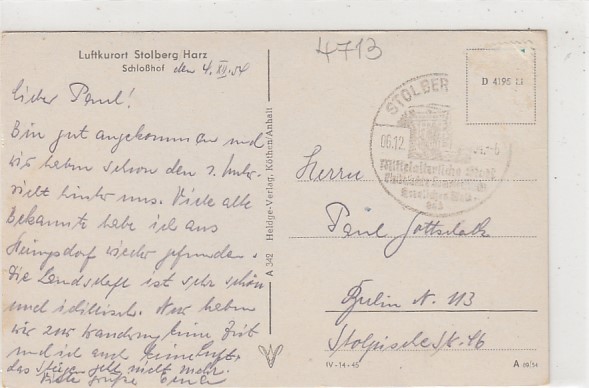 4713
Luftkurort Stolberg/Harz
Schloßhof
den 4. XII. 54
Lieber Paul!
Bin gut angekommen und
wir haben schon den 2. Unter-
richt hinter uns. Viele alte
Bekannte habe ich aus
wieder gefunden.
Die Landschaft ist sehr schön
und idillisch. Nur haben
wir zur Wanderung keine Zeit
und ich auch keine Luft,
das Steigen geht nicht mehr.
Viele Grüße
A 342 Heldge-Verlag, Köthen/Anhalt
D 4195
STOLBER
06.12
Mittelalterliche Stadt
Herrn
Paul Gottschalk
Berlin N. 113
Stolpische Str. 46
IV-14-45
A 69/54